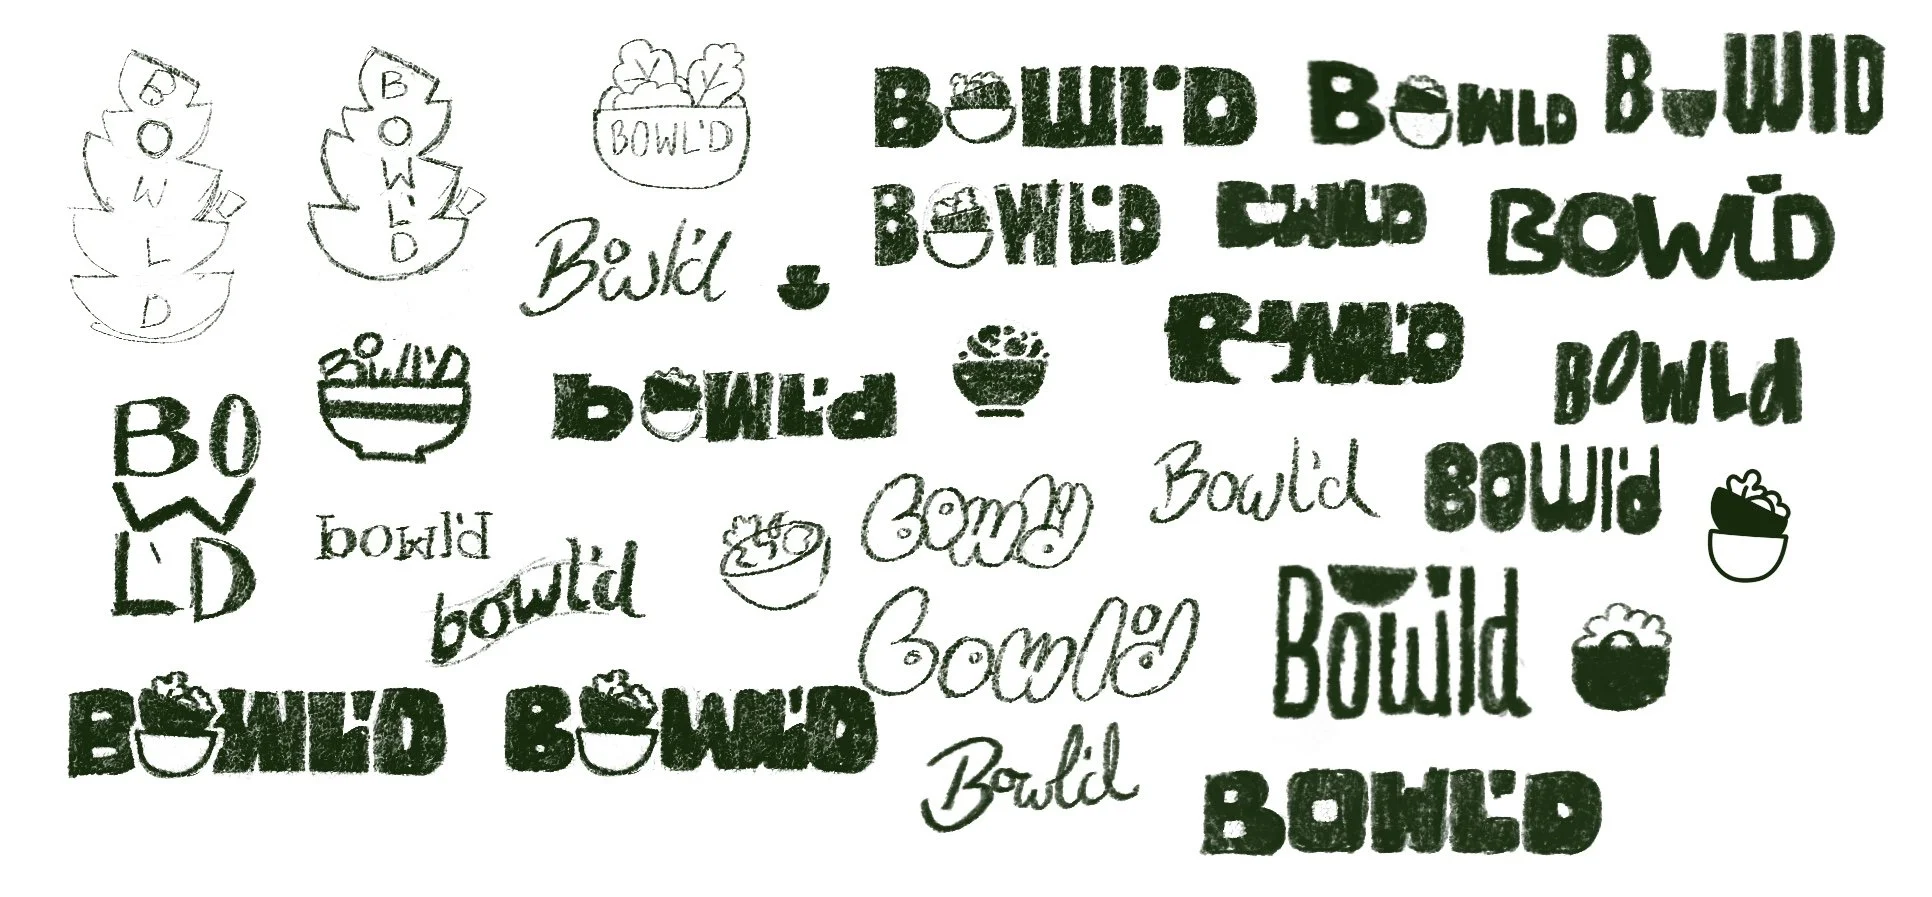 B
O
W
L
D
B
O
W
L'
D
BOWL'D
BOWL'D
BOWLD
BOWlD
BOWL'D
BOWL'D
BOWL'D
Bowl'd
BOWL'D
BOWL'D
BOWLd
bowl'd
BO
W
L'D
bowl'd
bowl'd
Bowl'd
Bowl'd
BOWl'd
Bowl'd
Bowl'd
BOWL'D
BOWL'D
Bowl'd
BOWL'D